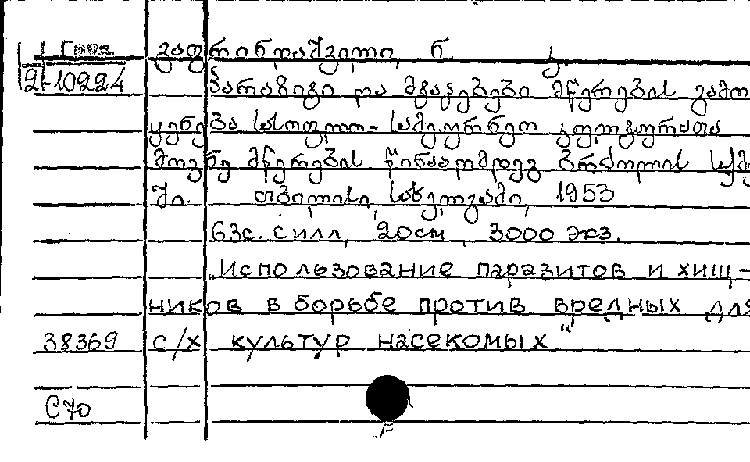 2-10224
პარაზიტი და მტაცებელი მწერების გამო
ყენება სასოფლო-სამეურნეო კულტურათა
მავნე მწერების წინააღმდეგ ბრძოლის საქმე
ში. თბილისი, სახელგამი, 1953
63с. с илл, 20см, 3000 экз.
"Использование паразитов и хищ-
ников в борьбе против вредных для
38369 с/х культур насекомых"
С70